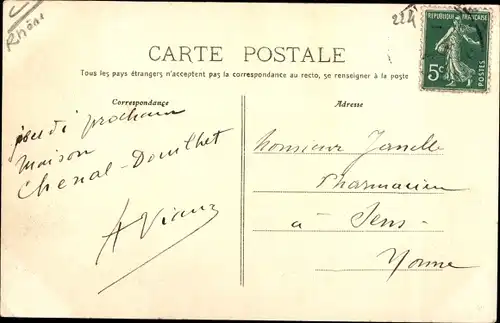 Rhône
224
CARTE POSTALE
Tous les pays étrangers n'acceptent pas la correspondance au recto, se renseigner à la poste
Correspondance
jeudi prochain
maison
Chenal-Douilhet
Adresse
Monsieur Janelle
Pharmacien
à Sens
Yonne
REPUBLIQUE FRANÇAISE
5c
POSTES